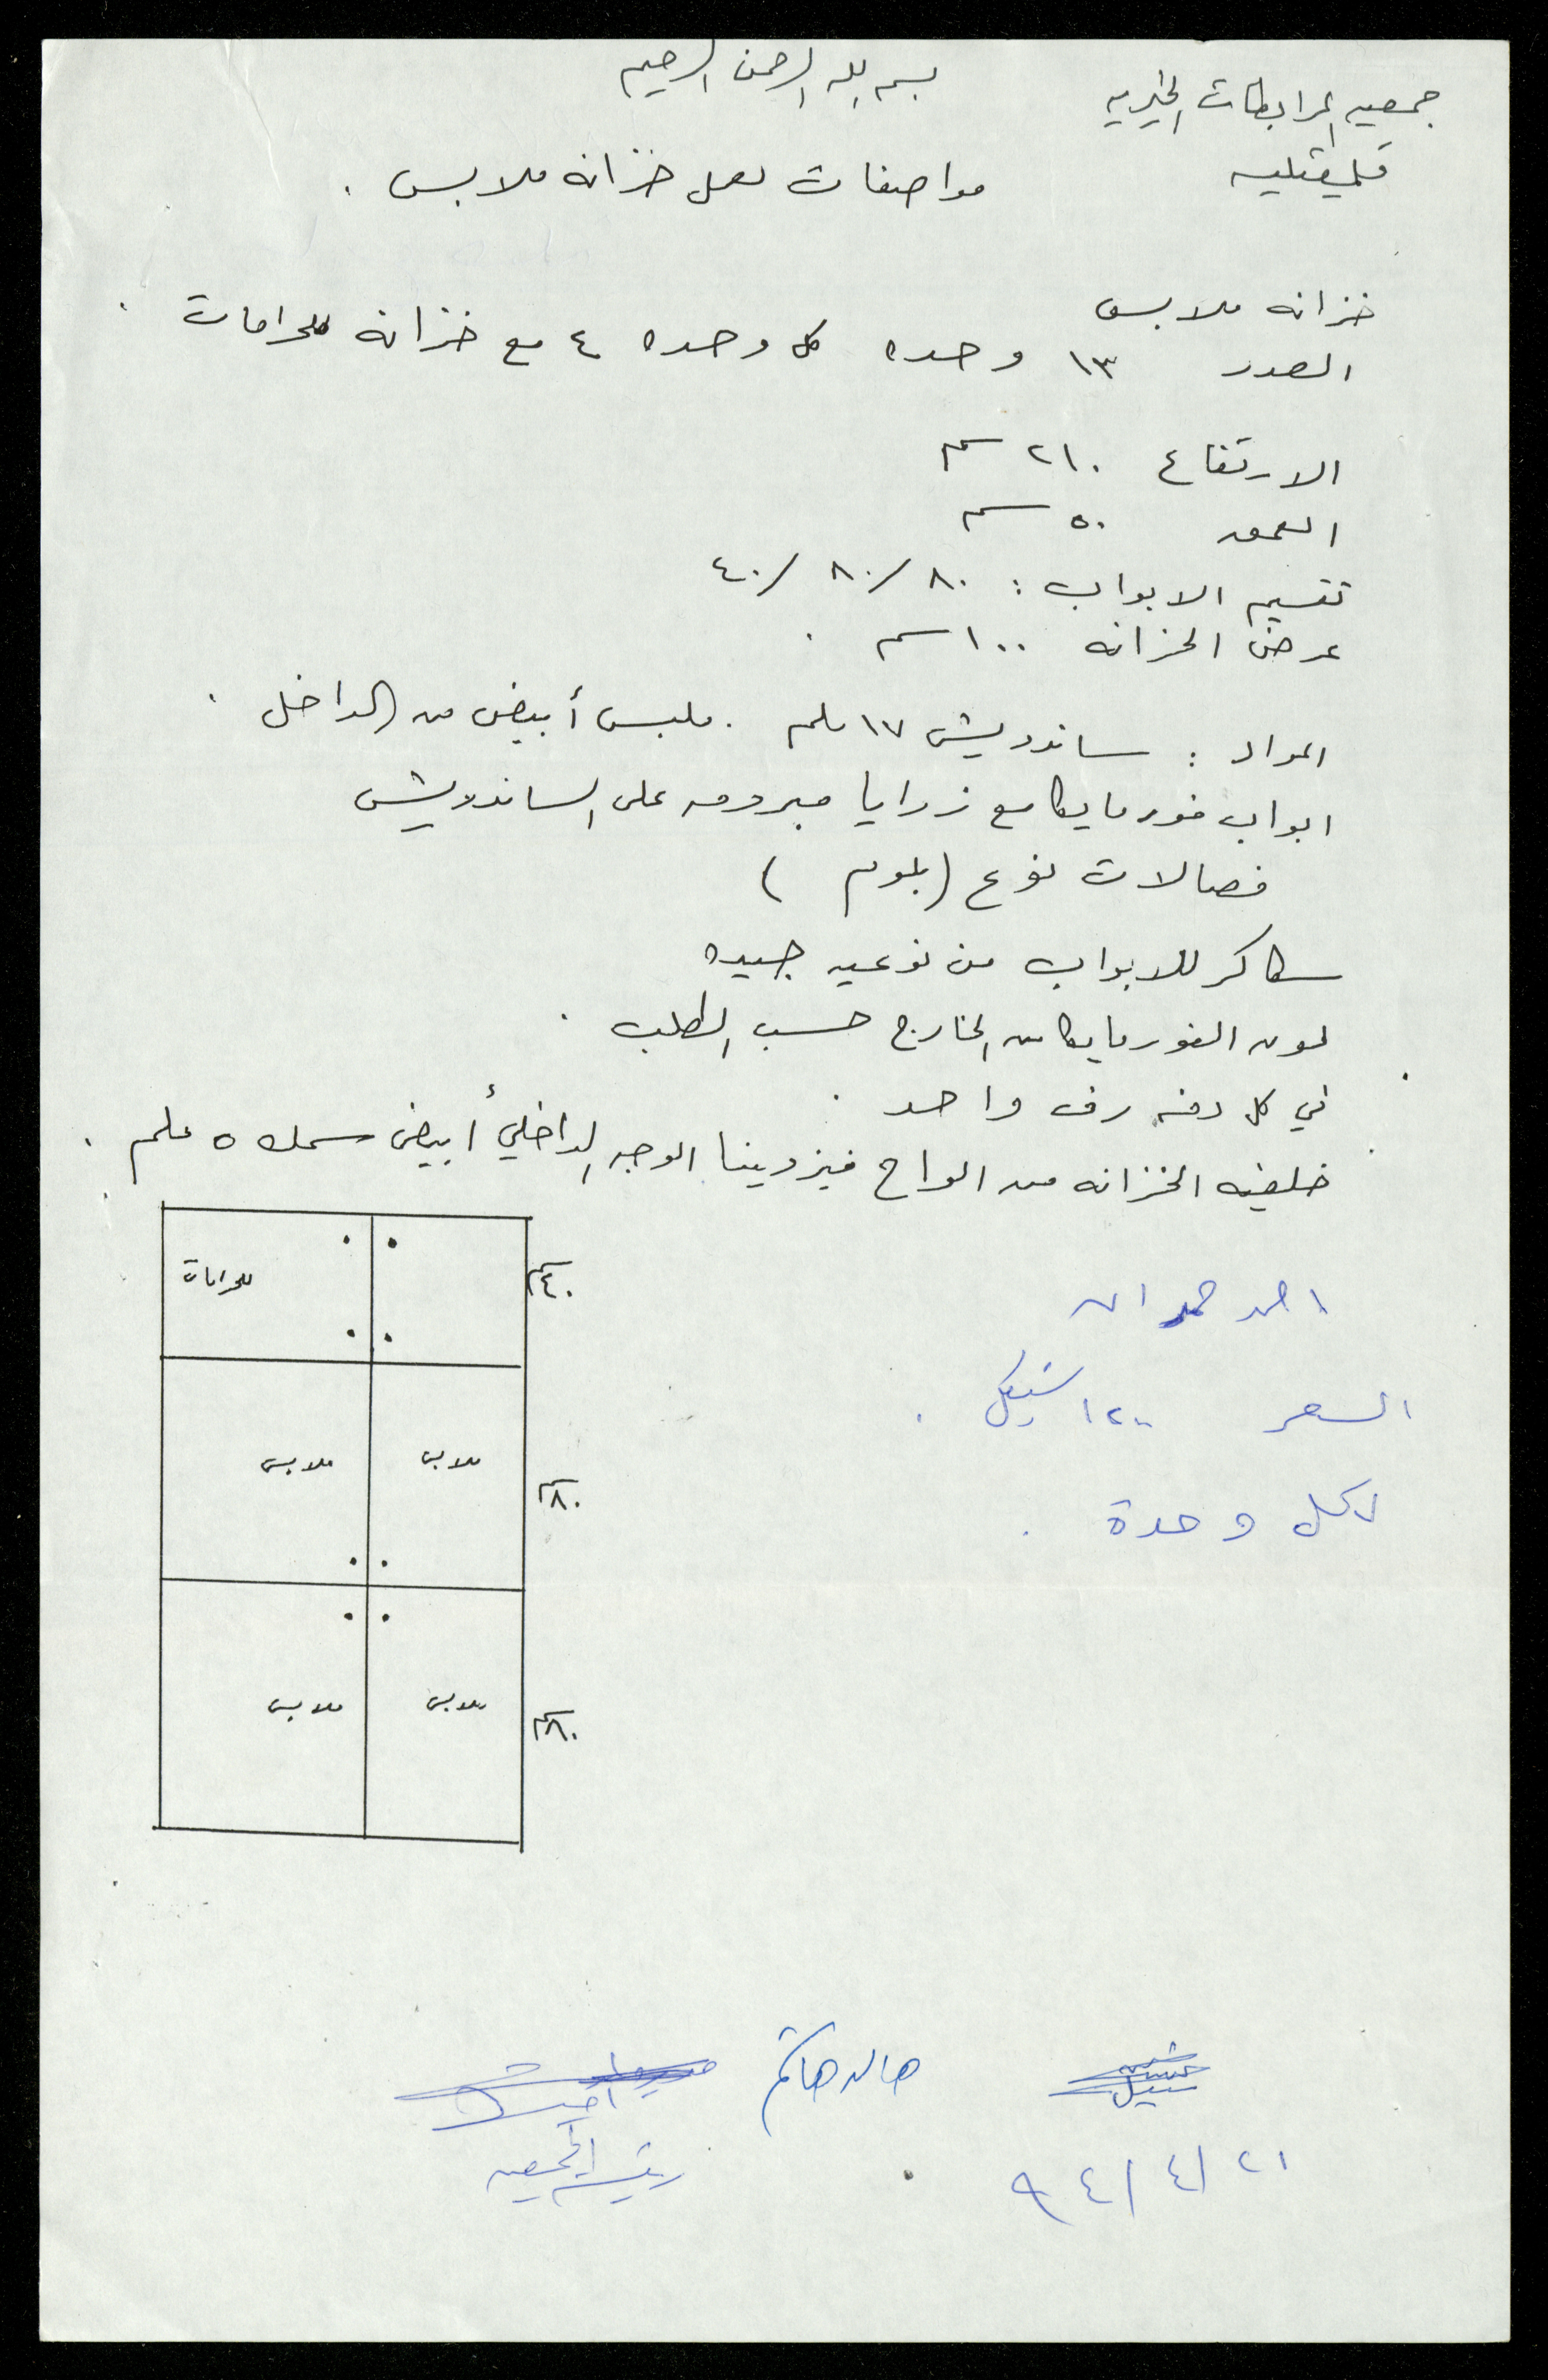 بسم الله الرحمن الرحيم
جمعيه المرابطات الخيريه
قلقيليه
مواصفات لعمل خزانه ملابس .
خزانه ملابس
العدد ١٣ وحده كل وحده ٤ مع خزانة للحرامات .
الارتفاع ٢١٠ سم
العمق ٥٠ سم
تقسيم الابواب : ٨٠/ ٨٠/ ٤٠
عرض الخزانه ١٠٠ سم .
المواد : ساندويش ١٧ ملم . ملبس أبيض من الداخل .
ابواب فورمايكا مع زوايا مبرومه على الساندويش
فصالات نوع ( بلوم )
سكاكر للابواب من نوعيه جيده
لون الفورمايكا من الخارج حسب الطلب .
في كل دفه رف واحد .
خلفيه الخزانه من الواح فيزونيت الوجه الداخلي أبيض سمك ٥ ملم .
للحرامات
٤٠ سم
ملابس ملابس
٨٠ سم
ملابس ملابس
٨٠ سم
احمد حمدان
السعر ١٢٠٠ شيكل .
لكل وحدة .
رئيسة الجمعيه
٢١ / ٤ / ٩٤